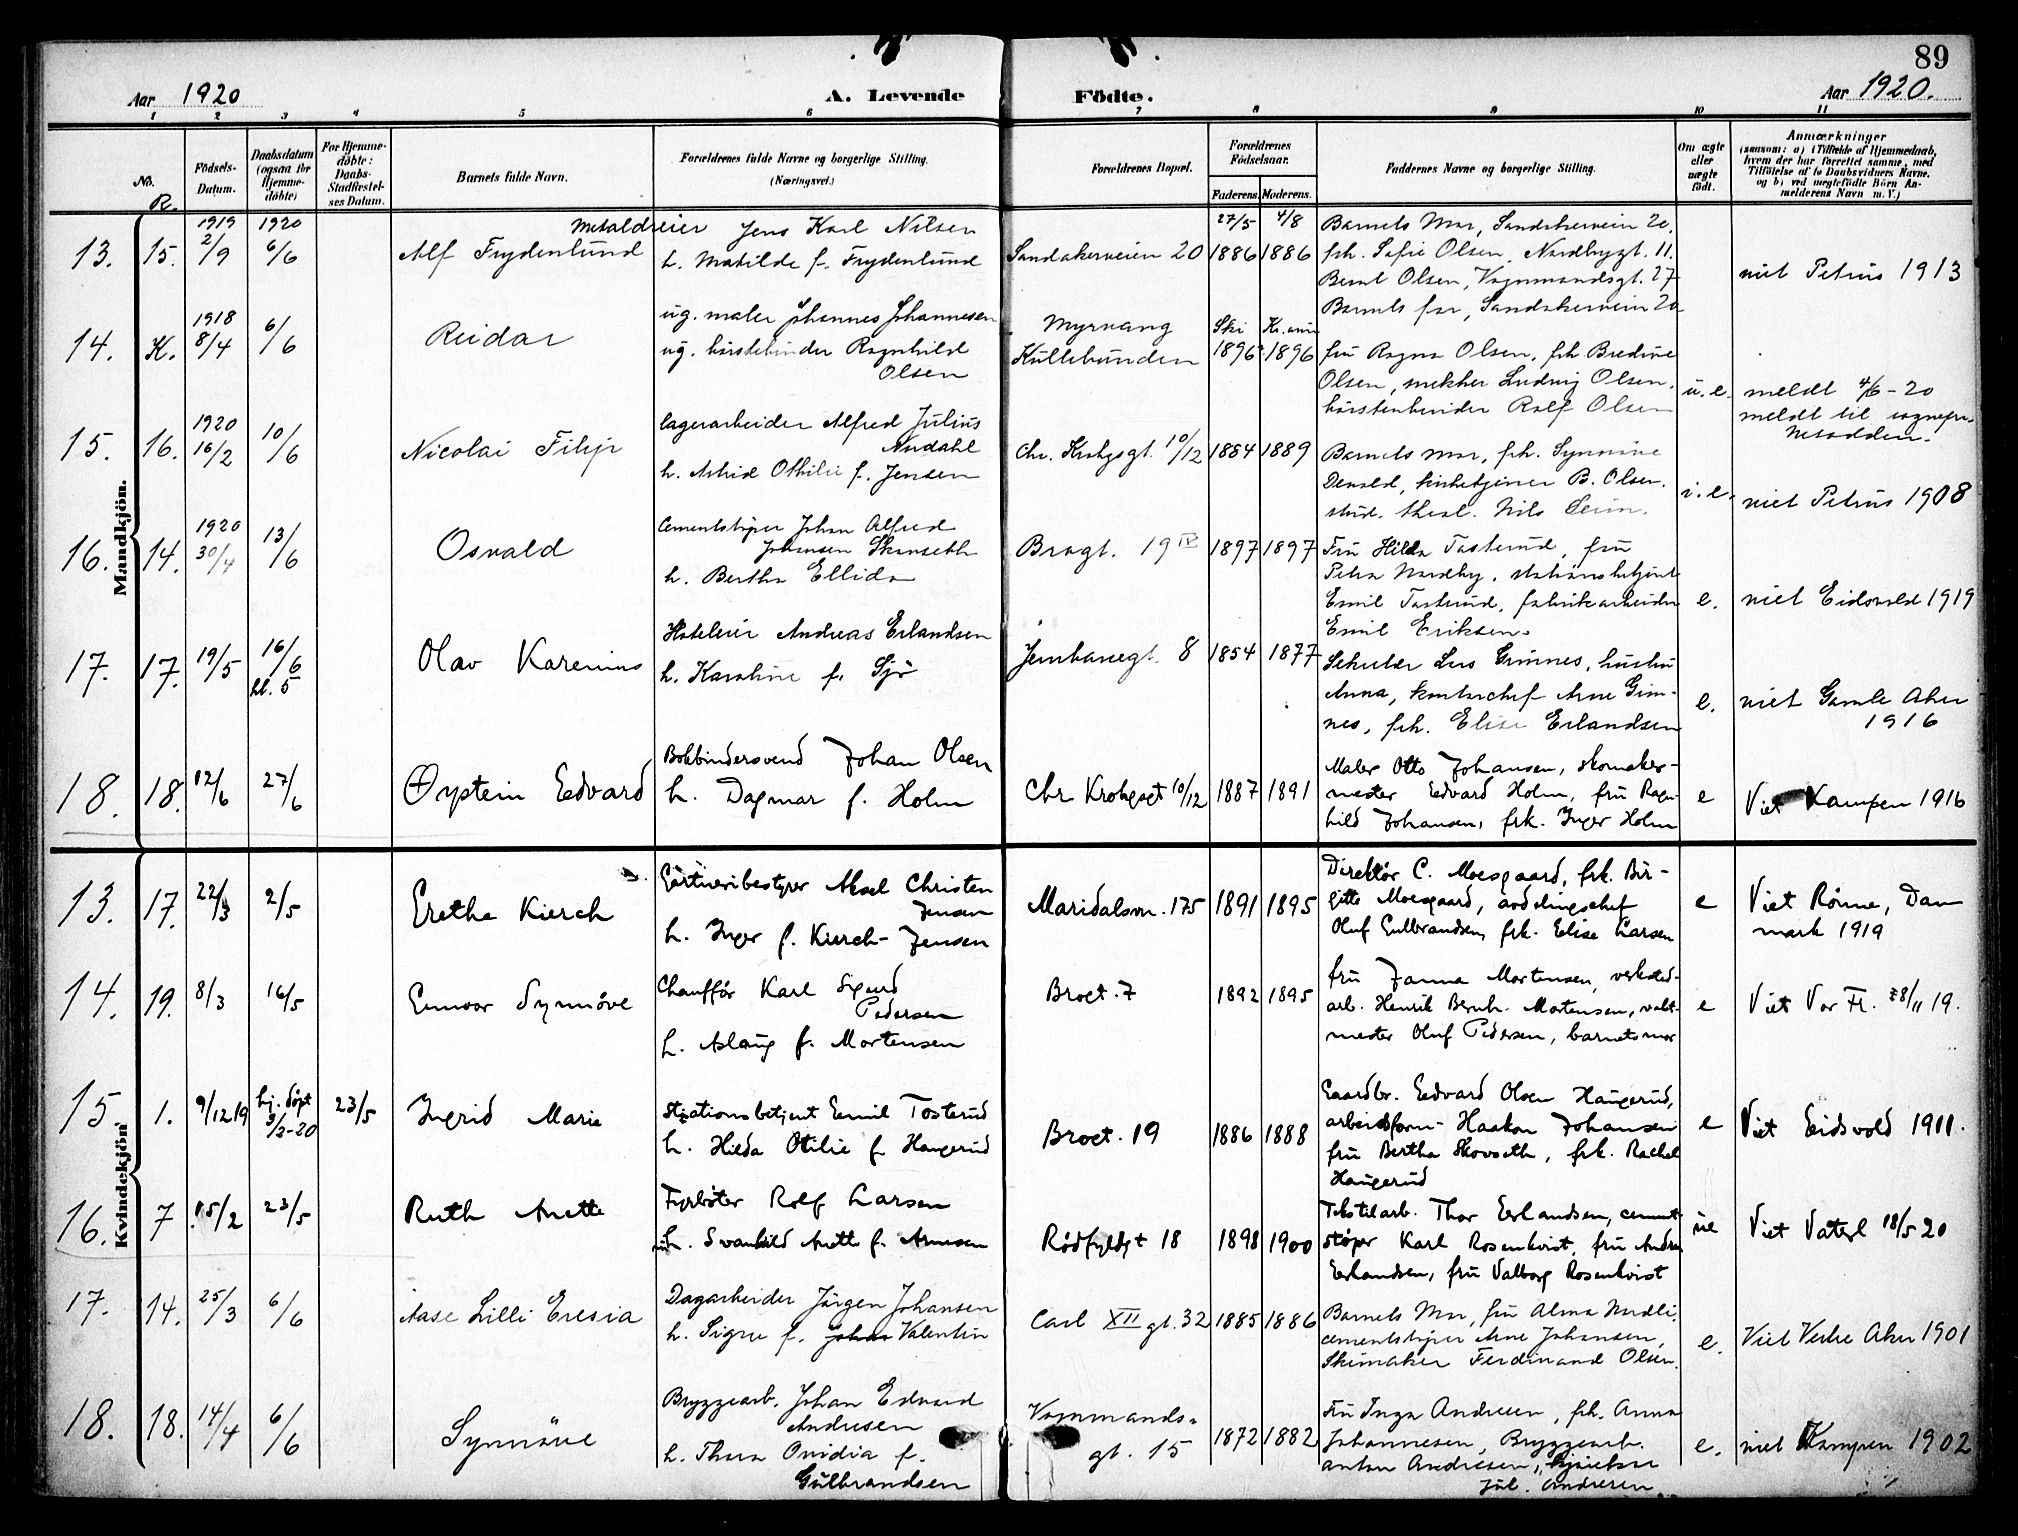 89
Aar 1920
A. Levende
Födte.
Aar 1920.
1 2 3 4 5 6 7 8 9 10 11
No.
R.
Födsels-
Datum.
Daabsdatum
(ogsaa for
Hjemme-
döbte)
For Hjemme-
döbte:
Daabs-
Stadfæstel-
ses Datum.
Barnets fulde Navn.
Forældrenes fulde Navne og borgerlige Stilling.
(Næringsvei.)
Forældrenes Bopæl.
Forældrenes
Födselsaar.
Faderens.
Moderens.
Faddernes Navne og borgerlige Stilling.
Om ægte
eller
uægte
födt.
Anmærkninger
(saasom: a) i Tilfælde af Hjemmedaab,
hvem der har forrettet samme, med
Tilföielse af to Daabsvidners Navne.
og b) ved uægtefödte Börn An-
melderens Navn m. V.)
Mandkjön.
13. 15.
1919
2/9
1920
6/6
Alf Frydenlund
Metaldreier Jens Karl Nilsen
h. Matilde f. Frydenlund
Sandakerveien 20
27/5
1886
4/8
1886
Barnets Mor, Sandakervein 20,
frk. Sofie Olsen, Nordbygt. 11.
Bernt Olsen, Vognmandsgt. 27
Barnets far, Sandakervein 20
viet Petrus 1913
14. K.
1918
8/4
6/6
Reidar
ug. maler Johannes Johannesen
ug. börstebinder Ragnhild
Olsen
Myrvang
Kullebunden
Ski
1896
1896
fru Ragna Olsen, frk. Bredine
Olsen, snekker Ludvig Olsen,
börstenbinder Rolf Olsen
u.e.
meldt 4/6-20
meldt til sognepr.
Nesodden.
15. 16.
1920
16/2
10/6
Nicolai Filip
lagerarbeider Alfred Julius
h. Astrid Othilie f. Jensen
Chr. Krohgsgt. 10/12
1884
1889
Barnets mor, frk. Synnöve
kirketjener B. Olsen.
stud. theol. Nils
i.e.
viet Petrus 1908
16. 14.
1920
30/4
13/6
Osvald
Cementstöper Johan Alfred
Johansen Skanseth
h. Bertha Ellida
Brogt. 19 IV
1897
1897
Fru Hilda Tosterud, fru
Petra Nordby, stationsbetjent
Emil Tosterud, fabrikarbeider
Emil Eriksen.
e.
viet Eidsvold 1919
17. 17.
19/5
16/6
kl. 5
Olav Karenius
Hoteleier Andreas Erlandsen
h. Karoline f. Sjö
Jernbanegt. 8
1854
1877
Sekretær Lars Gimnes, hustru
Anna, kontorchef Arne Gim-
nes, frk. Elise Erlandsen
e.
viet Gamle Aker
1916
18. 18.
12/6
27/6
Øystein Edvard
Bokbindersvend Johan Olsen
h. Dagmar f. Holm
Chr Krohgsgt 10/12
1887
1891
Maler Otto Johansen, skomaker-
mester Edvard Holm, fru Ragn-
hild Johansen, frk. Inger Holm
e
Viet Kampen 1916
Kvindekjön
13. 17.
22/3
2/5
Grethe Kierch
Gartneribestyrer Aksel Christen
Jensen
h. Inger f. Kierch-Jensen
Maridalsvn. 175
1891
1895
Direktør C. Moesgaard, frk. Bir-
gitte Moesgaard, avdelingschef
Oluf Gulbrandsen, frk. Elise Larsen
e
Viet Rönne, Dan
mark 1919
14. 19.
8/3
16/5
Gunvor Synnöve
Chauffør Karl Sigurd
Pedersen
h. Aslaug f. Mortensen
Brogt. 7
1892
1895
fru Janna Mortensen, verksted-
arb. Henrik Bernh. Mortensen, vakt-
mester Oluf Pedersen, barnets mor
e
Viet Vor Fr. 28/11 19.
15 1.
9/12 19
hj. döpt
3/2-20
23/5
Ingrid Marie
Stationsbetjent Emil Tosterud
h. Hilda Otilie f. Haugerud
Brogt. 19
1886
1888
Gaardbr. Edvard Olsen Haugerud,
arbeidsform. Haakon Johansen
fru Bertha Skovseth, frk. Rachel
Haugerud
e
Viet Eidsvold 1911.
16. 7
15/2
23/5
Ruth Anette
Fyrböter Rolf Larsen
h. Svanhild Anette f. Arnesen
Rødfyldgt 18
1898
1900
Tekstilarb. Thor Erlandsen, cement-
støper Karl Rosenkvist, fru Andrea
Erlandsen, fru Valborg Rosenkvist
ue
Viet Vaterl 18/5 20
17. 14.
25/3
6/6
Aase Lilli Eresia
Dagarbeider Jörgen Johansen
h. Signe f. Valentin
Carl XII gt. 32
1885
1886
Barnets Mor, fru Alma Nordli,
cementstöper Arne Johansen,
Skomaker Ferdinand Olsen.
e.
Viet Vestre Aker 1901
18. 18.
14/4
6/6
Synnöve
Bryggearb. Johan Edvard
Andresen
h. Thora Ovidia f.
Gulbrandsen
Vognmands-
gt. 15
1872
1882
Fru Inga Andresen, frk. Anna
Johannesen, Bryggearb.
Anton Andresen,
Jul. Andresen
e.
viet Kampen 1902